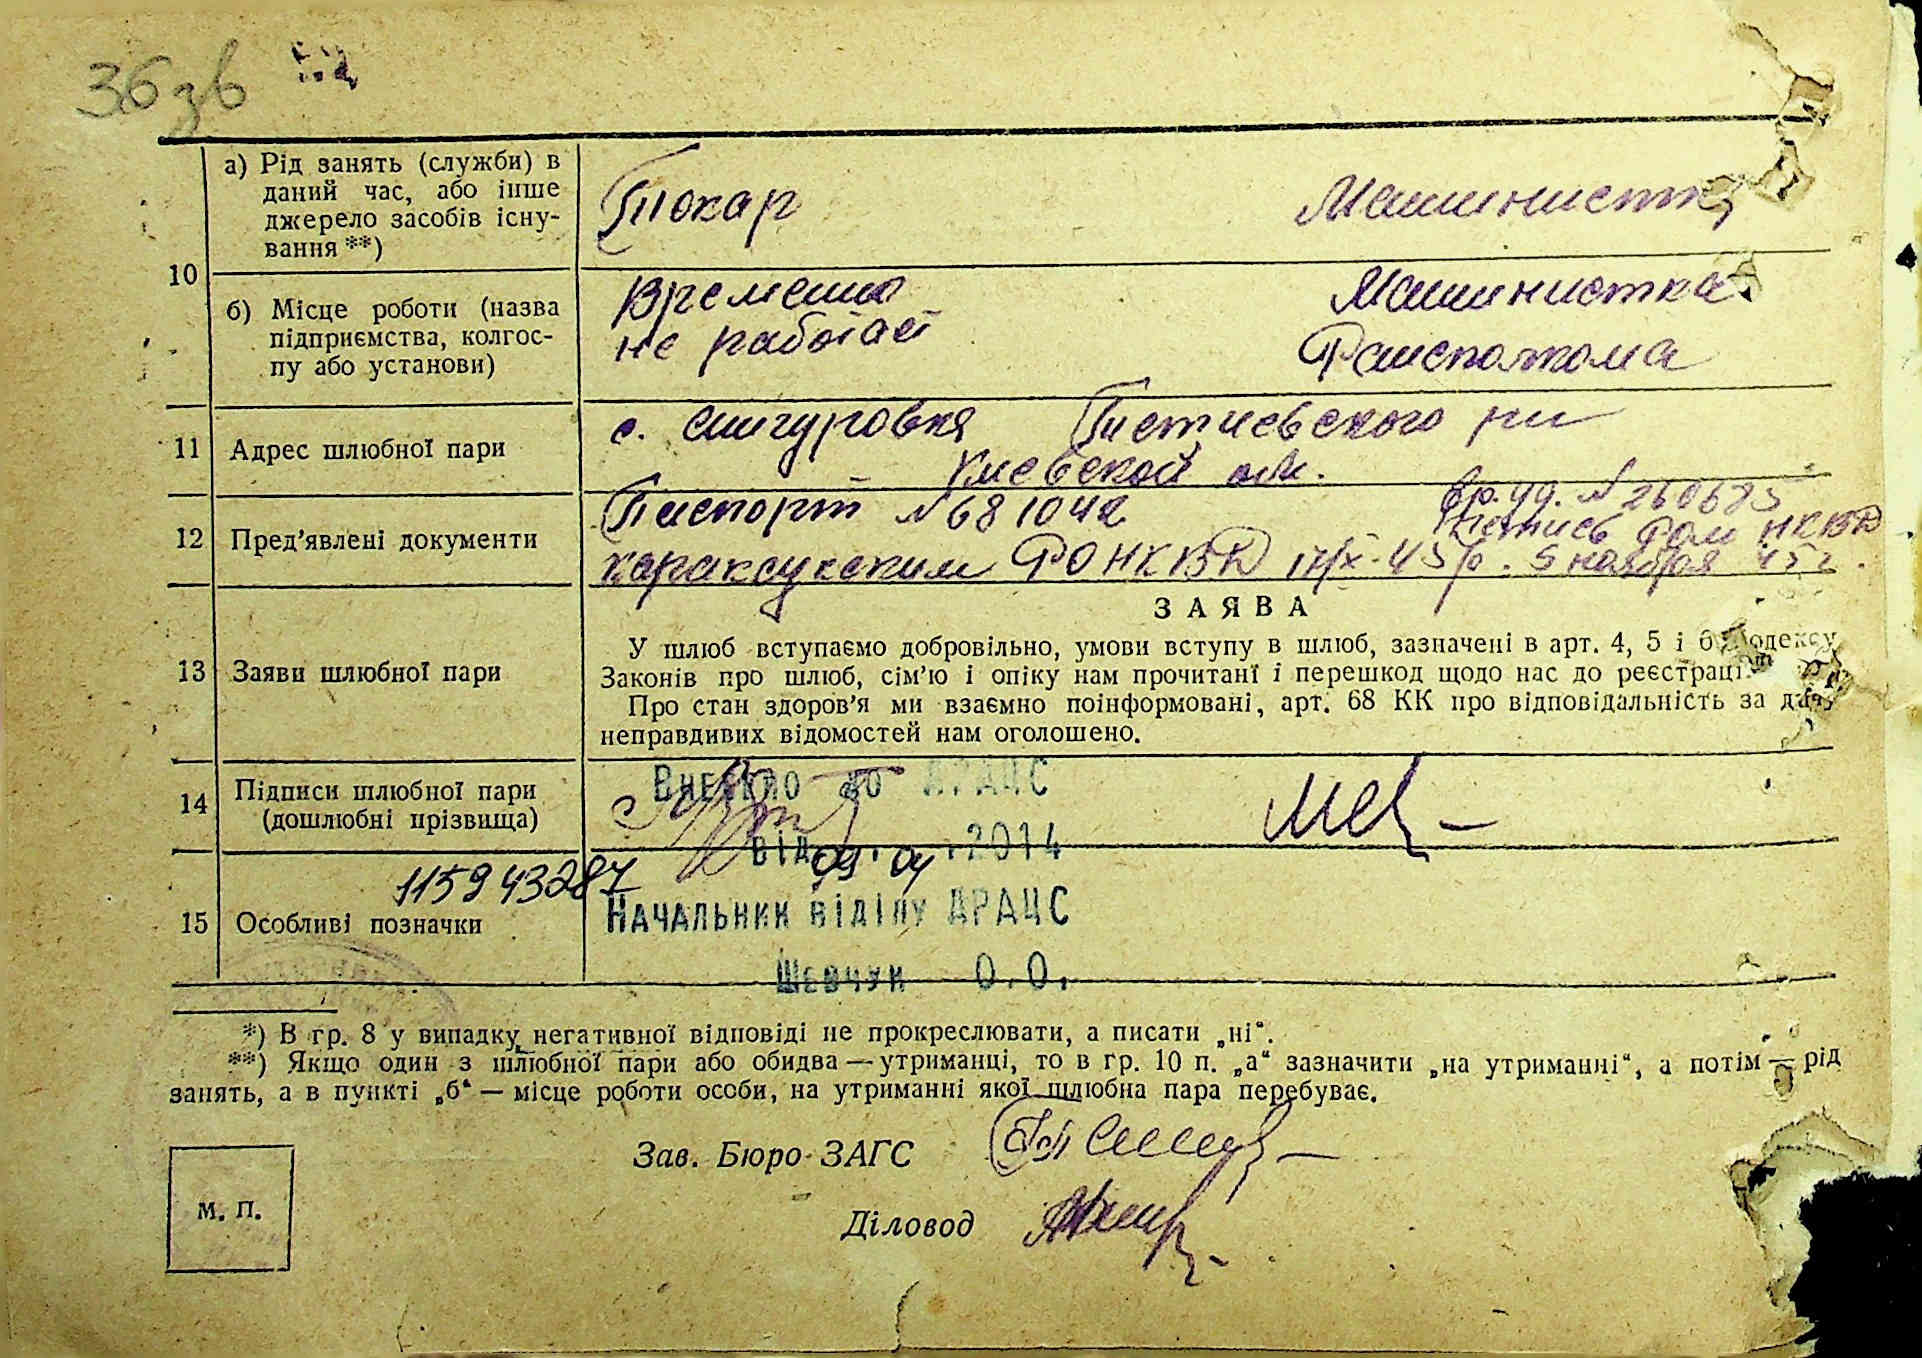 36 зв
а) Рід занять (служби) в
даний час, або інше
джерело засобів існу-
вання **)
Токар
Машинистка
10
б) Місце роботи (назва
підприємства, колгос-
пу або установи)
Временно
не работает
Машинистка
Райсполкома
11
Адрес шлюбної пари
с. Снигуровка Тетиевского рн
Киевской обл.
12
Пред'явлені документи
Паспорт №681042
Вр. уд. № 260685
НКВД
РО НКВД
5 ноября 45 г.
13
Заяви шлюбної пари
ЗАЯВА
У шлюб вступаємо добровільно, умови вступу в шлюб, зазначені в арт. 4, 5 і 6 Кодексу
Законів про шлюб, сім'ю і опіку нам прочитані і перешкод щодо нас до реєстрації
Про стан здоров'я ми взаємно поінформовані, арт. 68 КК про відповідальність за дачу
неправдивих відомостей нам оголошено.
14
Підписи шлюбної пари
(дошлюбні прізвища)
Внесено до ДРАЦС
від 09.04.2014
11594328 7
15
Особливі позначки
Начальник відділу ДРАЦС
Шевчук О.О.
*) В гр. 8 у випадку негативної відповіді не прокреслювати, а писати „ні“.
**) Якщо один з шлюбної пари або обидва — утриманці, то в гр. 10 п. „а“ зазначити „на утриманні“, а потім — рід
занять, а в пункті „б“ — місце роботи особи, на утриманні якої шлюбна пара перебуває.
Зав. Бюро ЗАГС
М. П.
Діловод